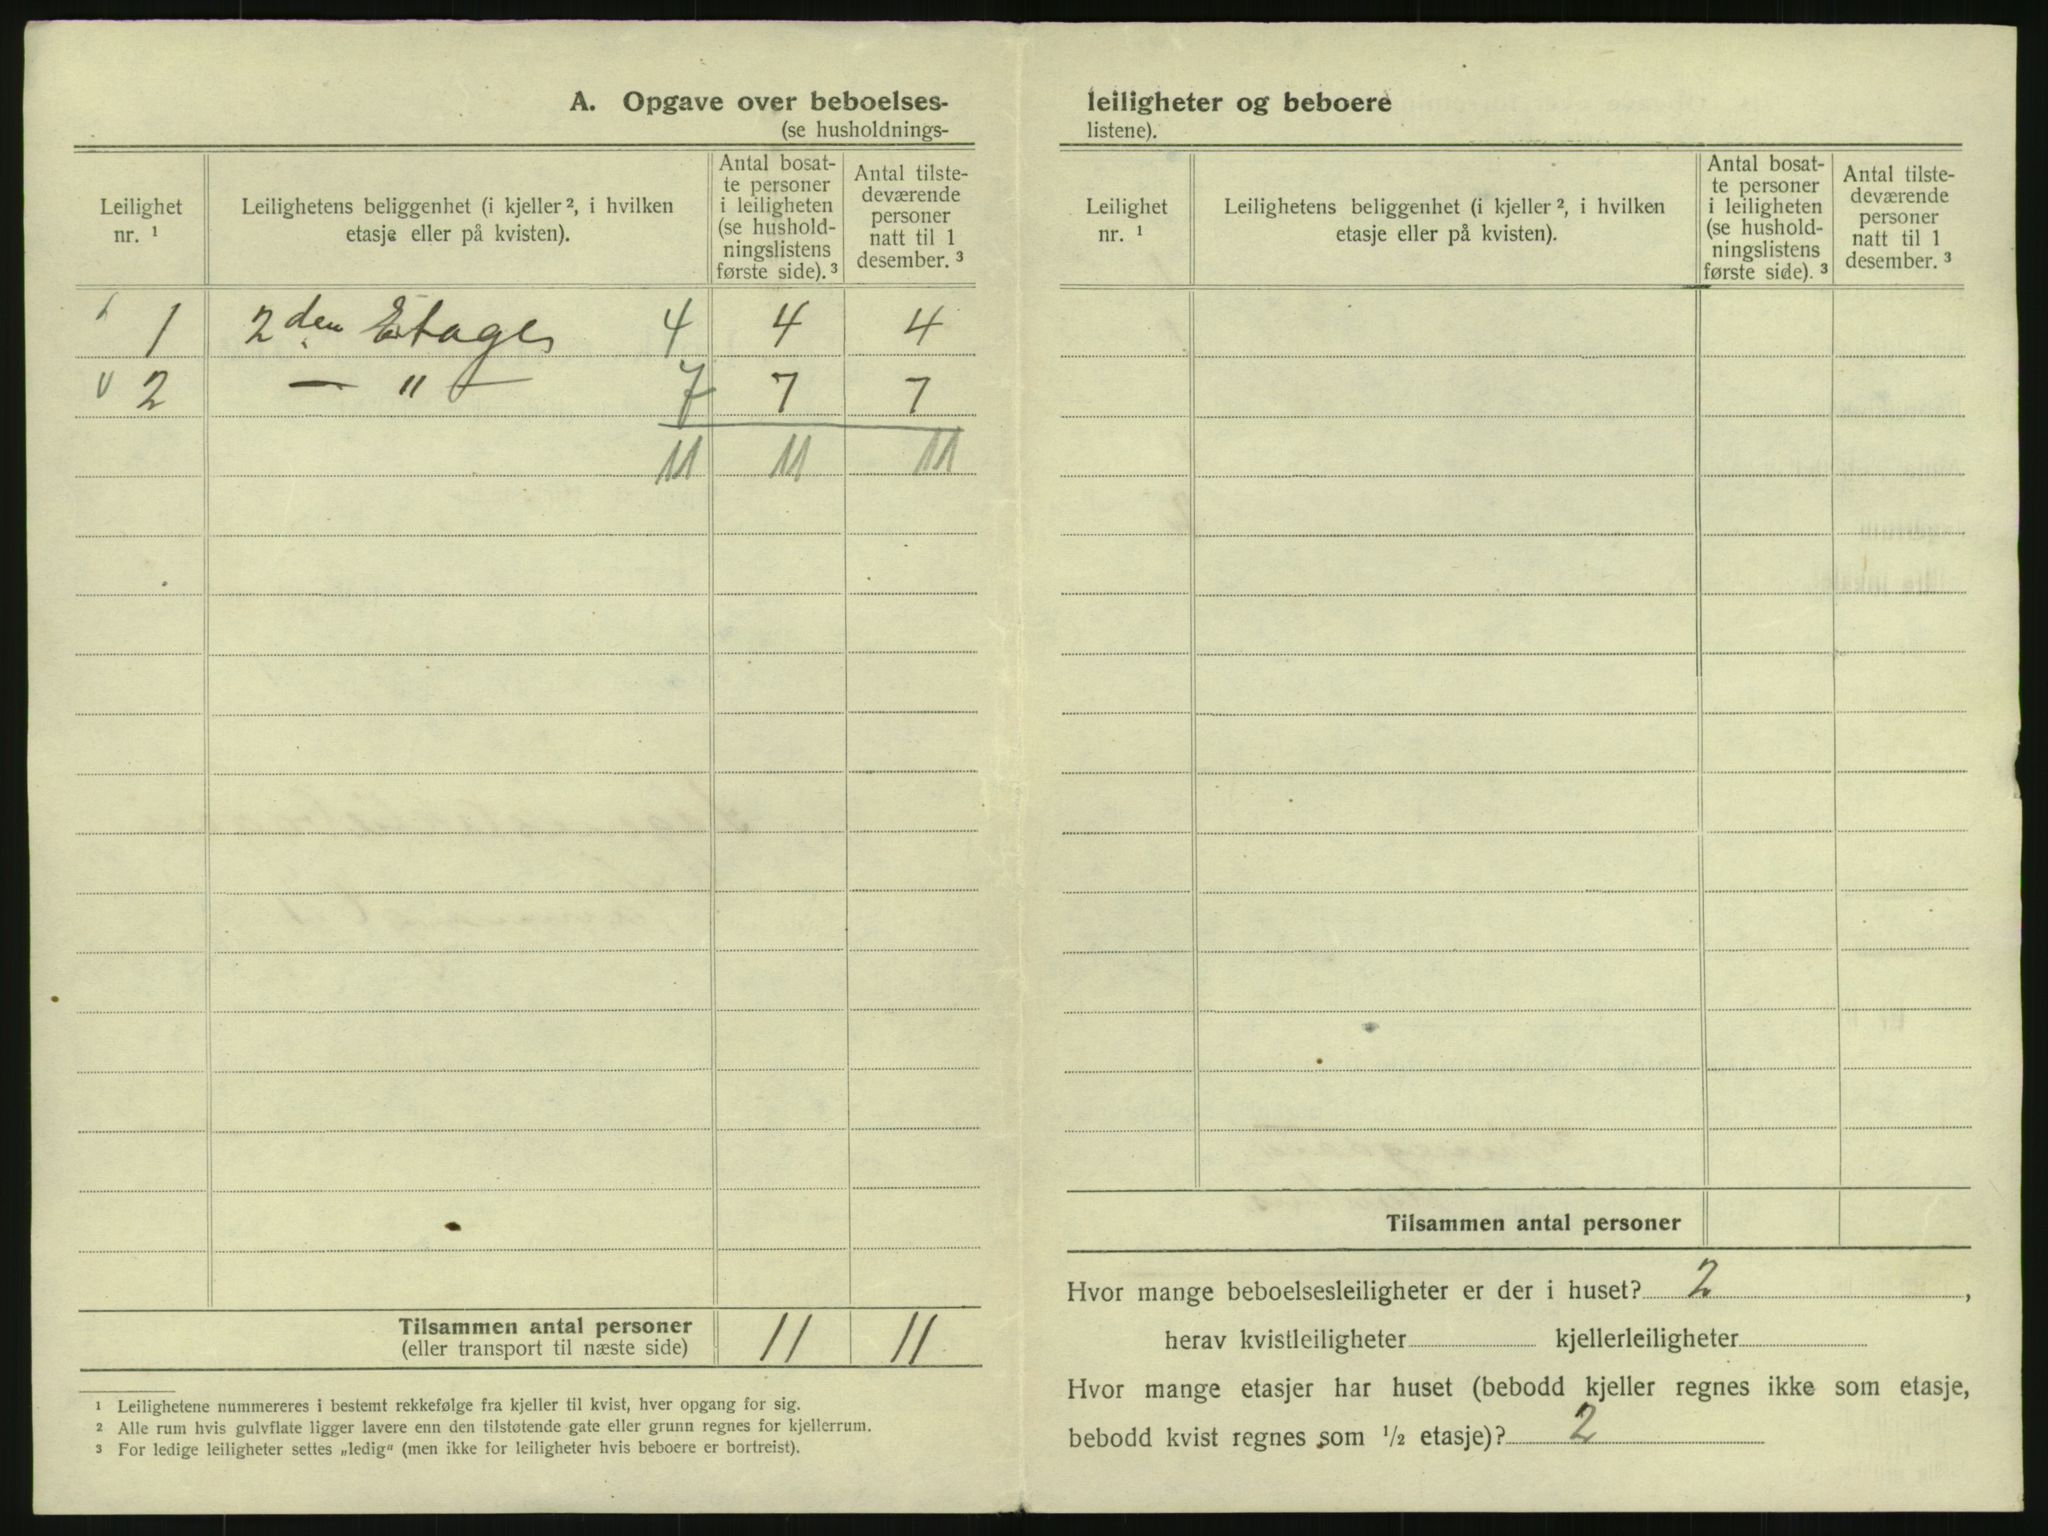 A. Opgave over beboelses-
(se husholdnings-
Leilighet
nr. ¹
Leilighetens beliggenhet (i kjeller ², i hvilken
etasje eller på kvisten).
Antal bosat-
te personer
i leiligheten
(se hushold-
ningslistens
første side). ³
Antal tilste-
deværende
personer
natt til 1
desember. ³
1 2den Etages 4 4 4
2 — " — 7 7 7
11 11 11
Tilsammen antal personer
(eller transport til næste side)
11 11
¹ Leilighetene nummereres i bestemt rekkefølge fra kjeller til kvist, hver opgang for sig.
² Alle rum hvis gulvflate ligger lavere enn den tilstøtende gate eller grunn regnes for kjellerrum.
³ For ledige leiligheter settes „ledig“ (men ikke for leiligheter hvis beboere er bortreist).
leiligheter og beboere
listene).
Leilighet
nr. ¹
Leilighetens beliggenhet (i kjeller ², i hvilken
etasje eller på kvisten).
Antal bosat-
te personer
i leiligheten
(se hushold-
ningslistens
første side). ³
Antal tilste-
deværende
personer
natt til 1
desember. ³
Tilsammen antal personer
Hvor mange beboelsesleiligheter er der i huset? 2,
herav kvistleiligheter kjellerleiligheter
Hvor mange etasjer har huset (bebodd kjeller regnes ikke som etasje,
bebodd kvist regnes som ½ etasje)? 2